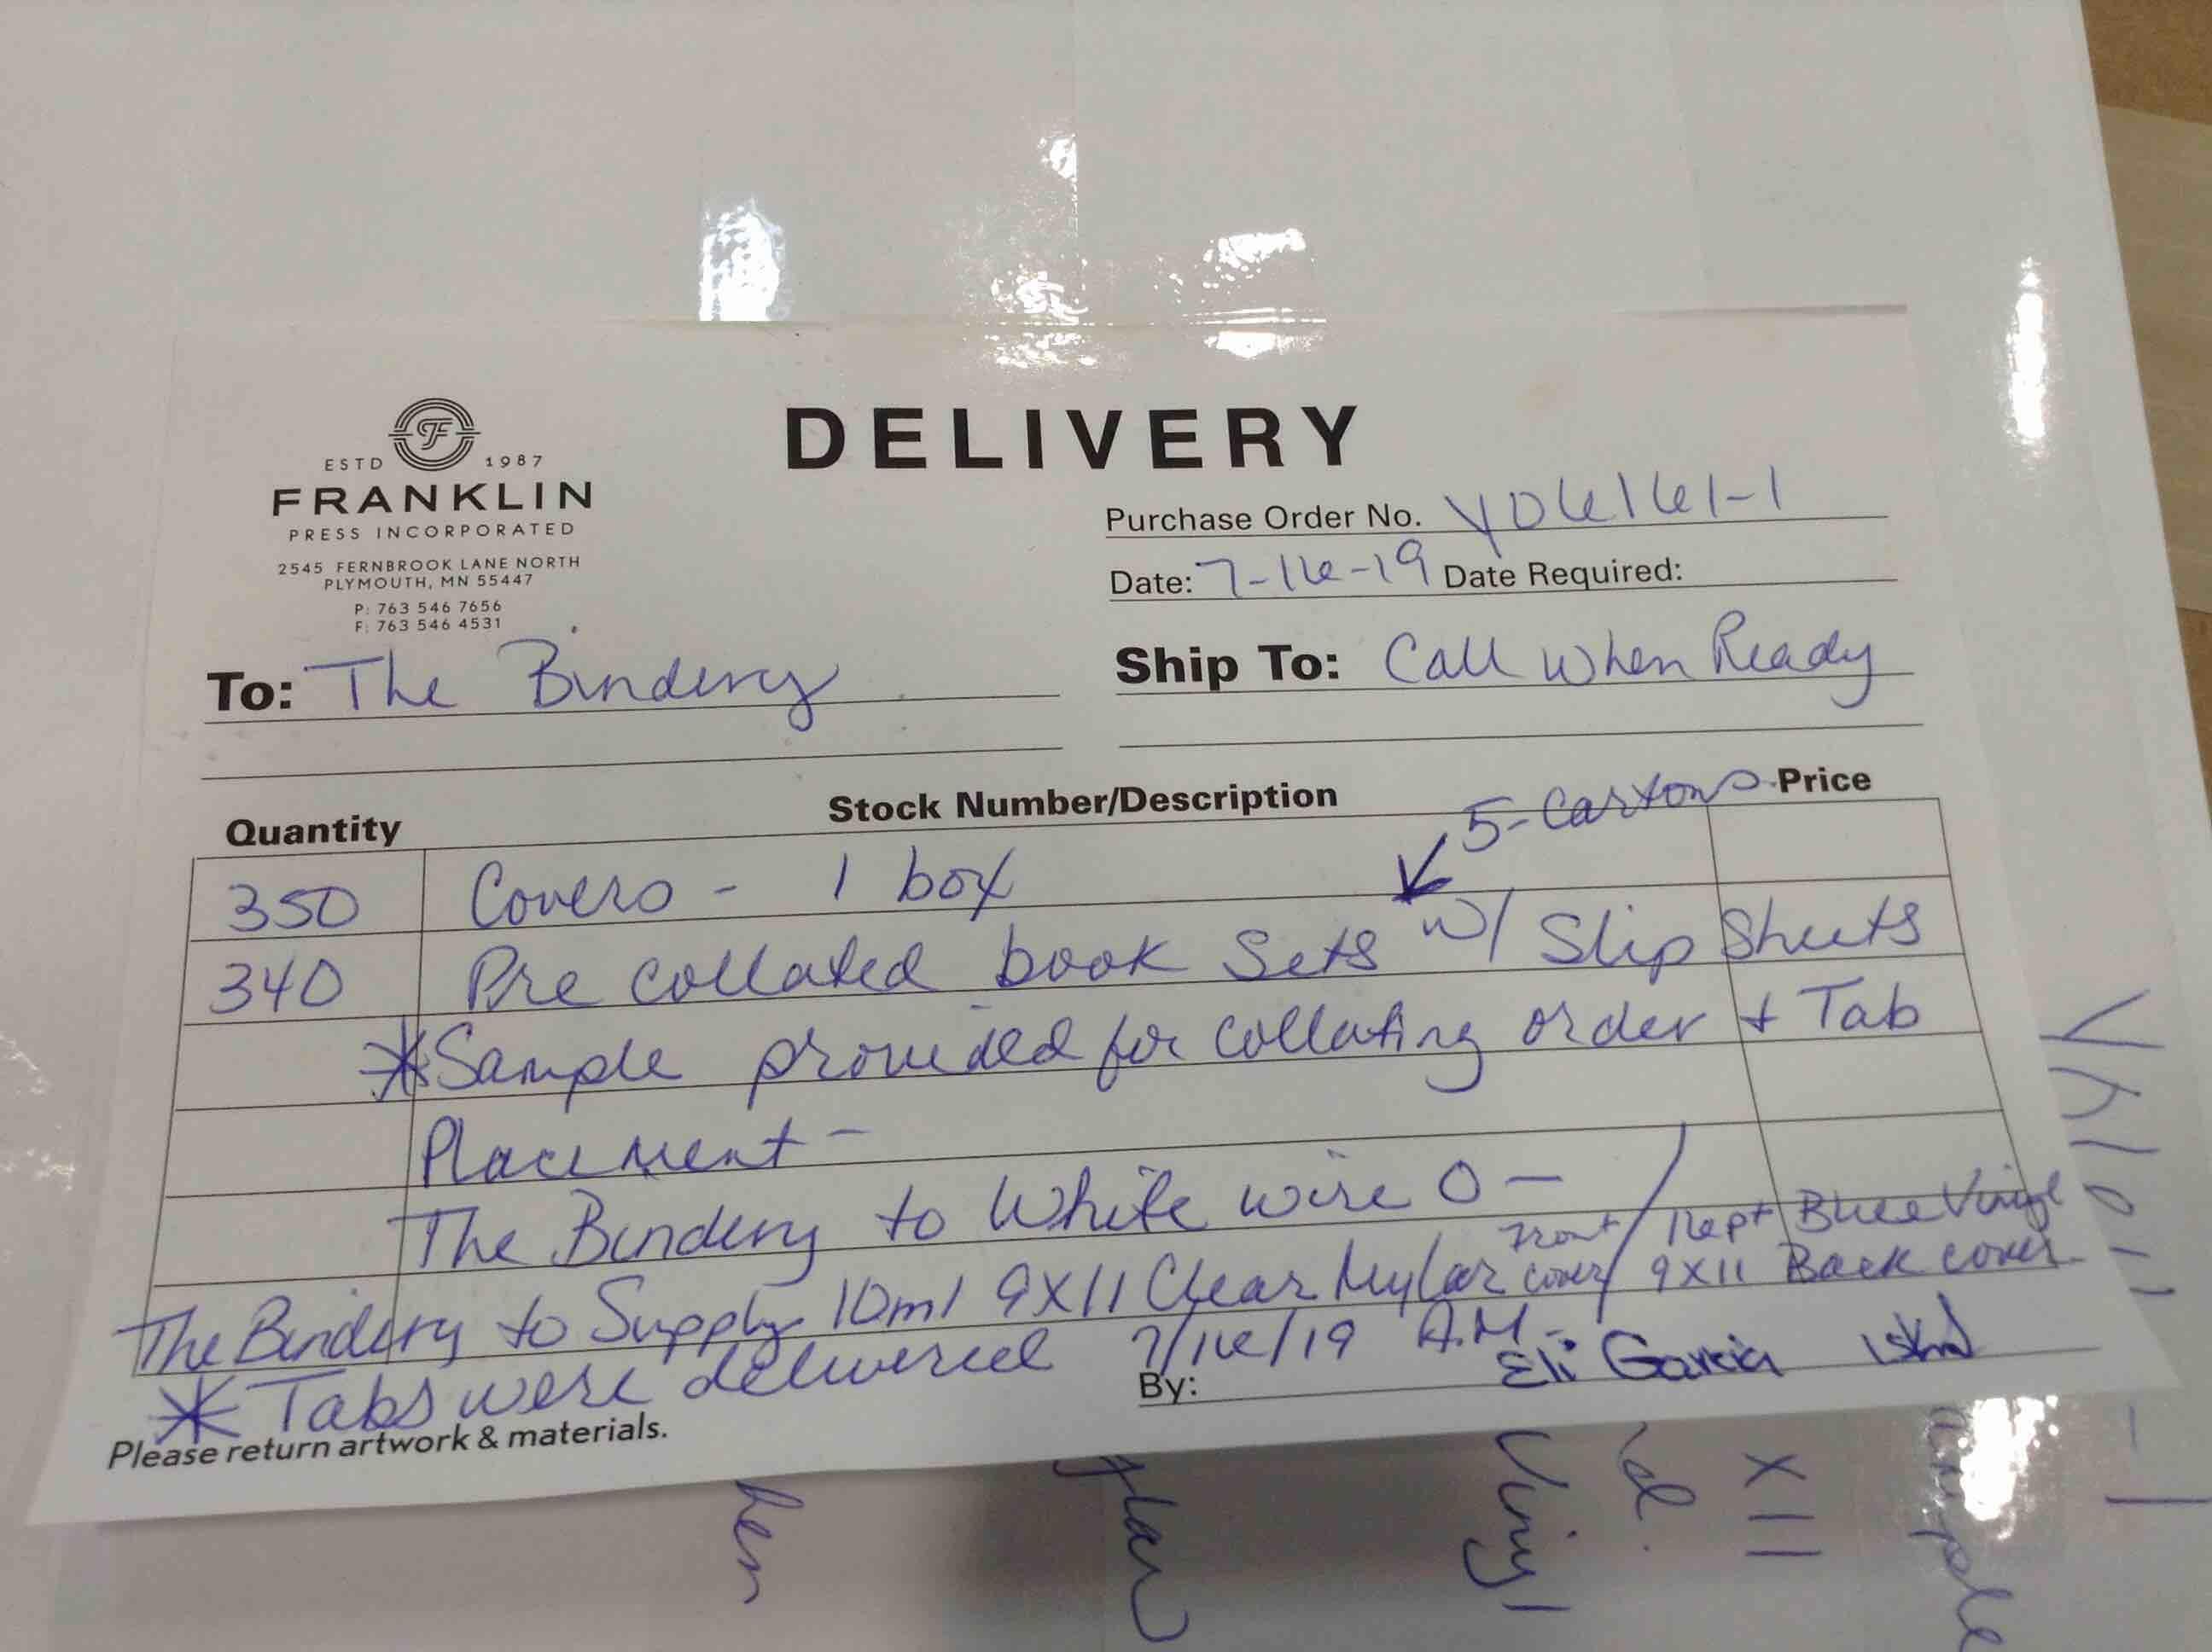 DELIVERY
ESTD 1987
FRANKLIN
PRESS INCORPORATED
2545 FERNBROOK LANE NORTH
PLYMOUTH, MN 55447
P: 763 546 7656
F: 763 546 4531
Purchase Order No. Y06161-1
Date: 7-16-19 Date Required:
To: The Bindery
Ship To: Call When Ready
Quantity Stock Number/Description Price
5-Cartons
350 Covers - 1 box
340 Pre collated book Sets w/ Slip Sheets
*Sample provided for collating order + Tab
Placement -
The Bindery to White wire O -
The Bindery to Supply 10ml 9X11 Clear Mylar Front cover / 16pt Blue Vinyl 9X11 Back cover
* Tabs were delivered 7/16/19 A.M.
By: Eli Garcia
Please return artwork & materials.
Vinyl
X 11